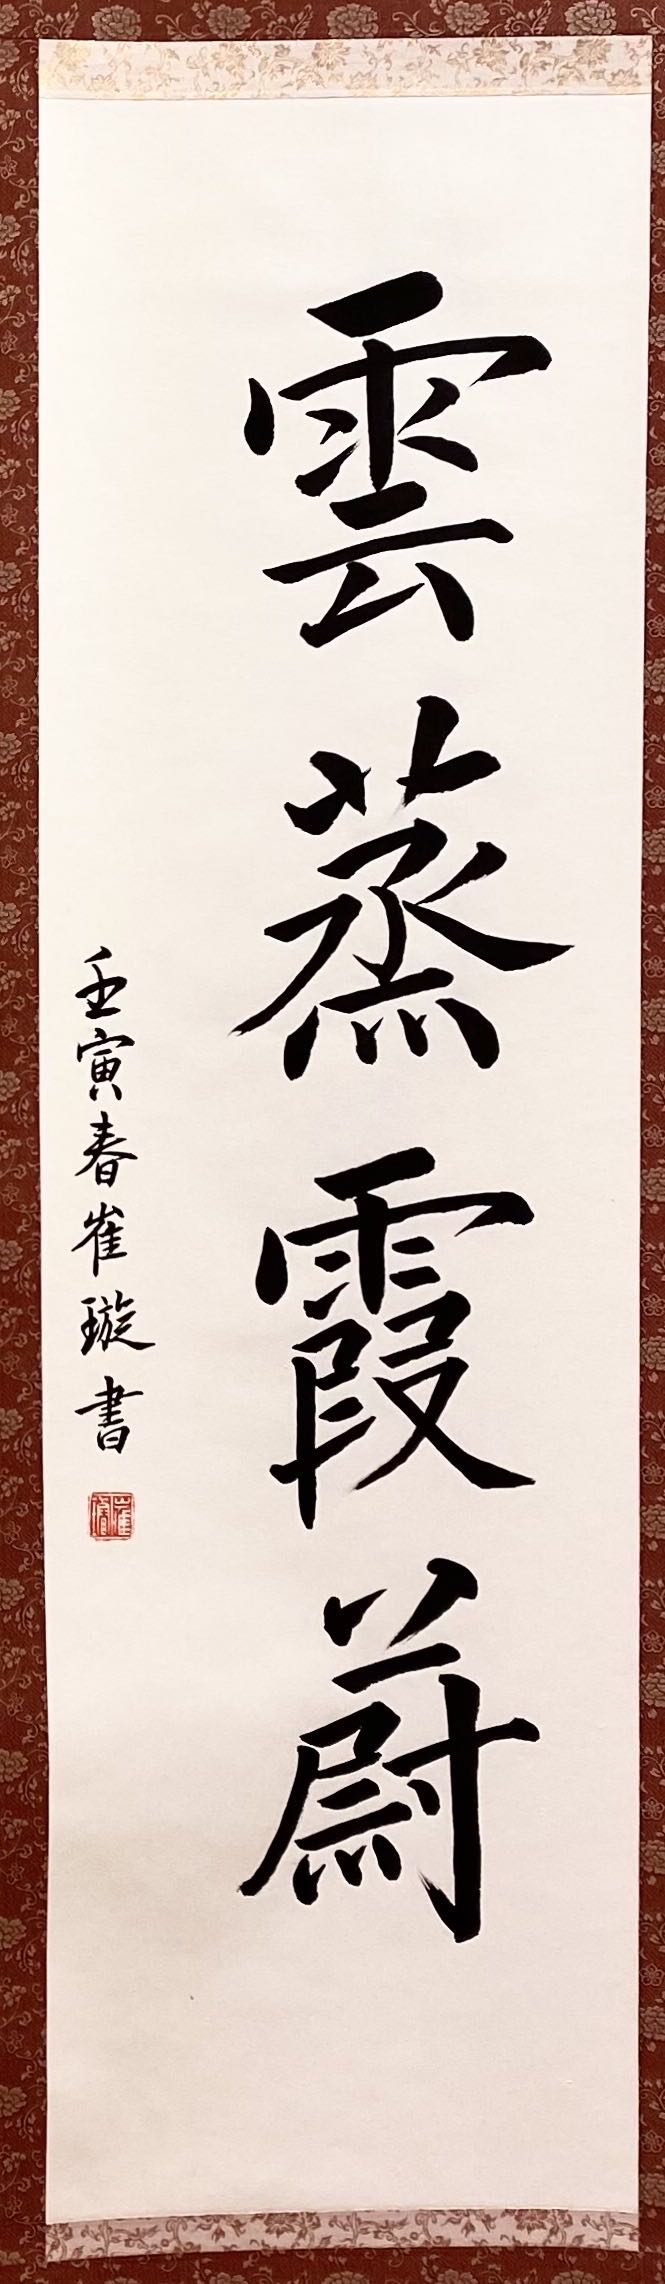 雲蒸霞蔚
壬寅春崔璇書